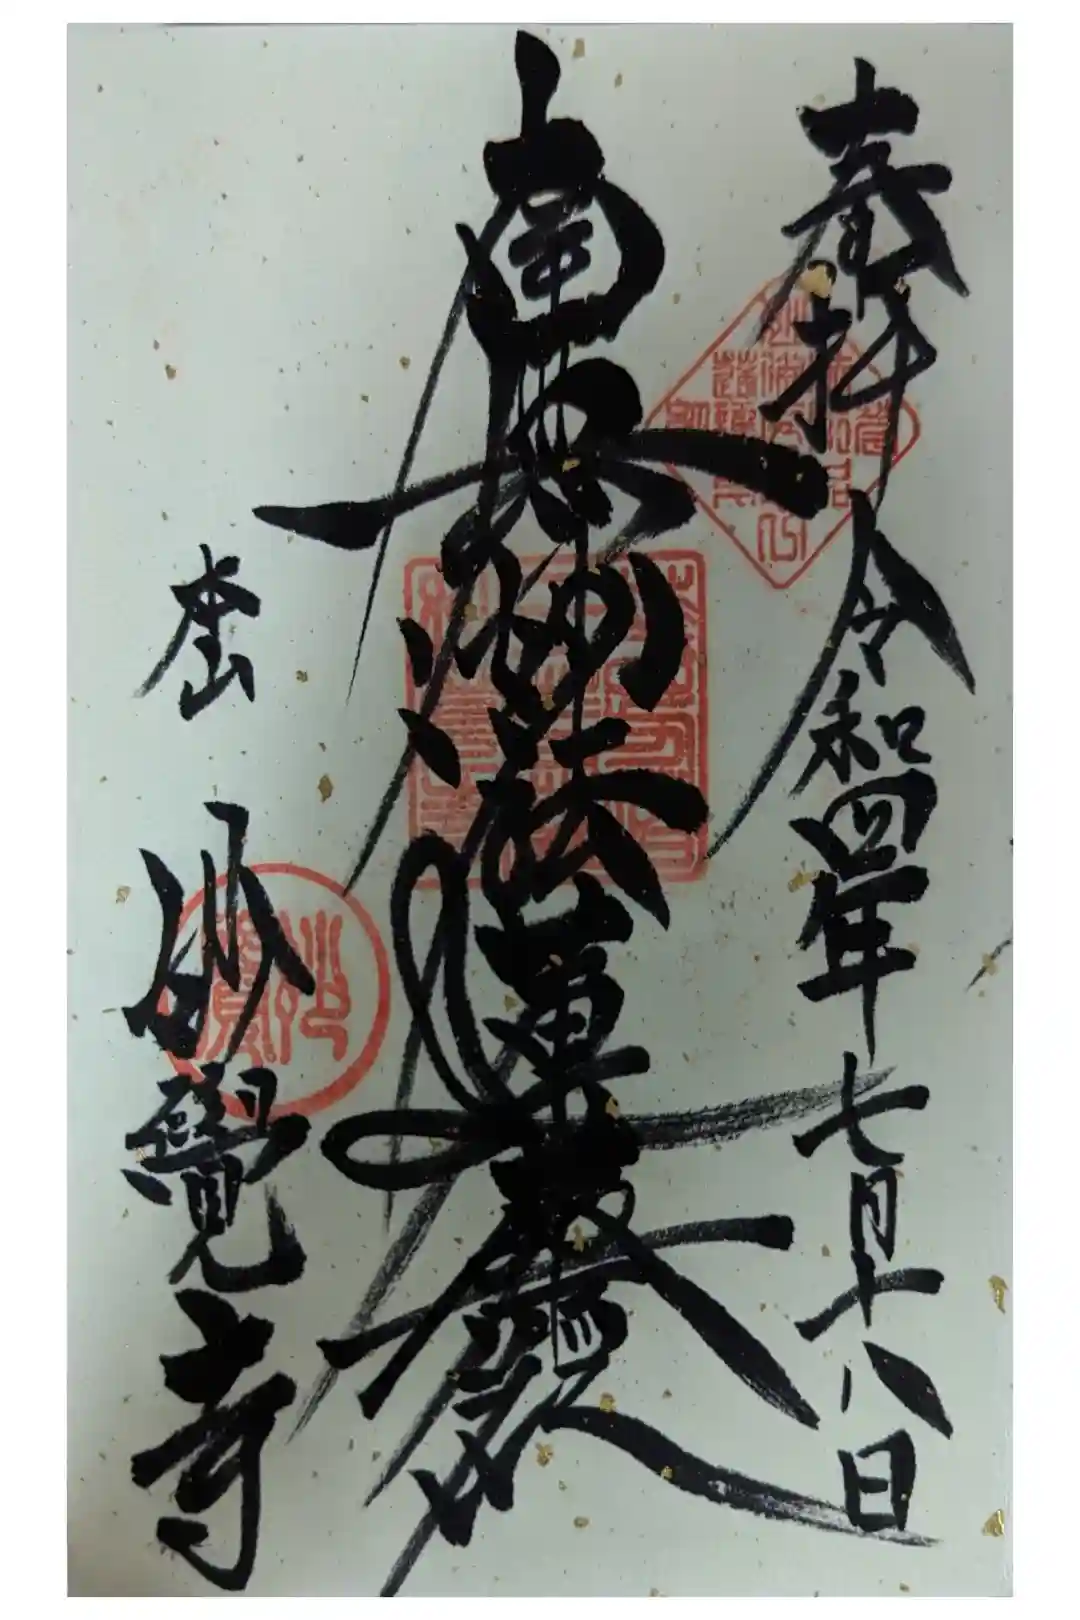 奉拝
令和四年七月十八日
南無妙法蓮華経
本山
妙覺寺